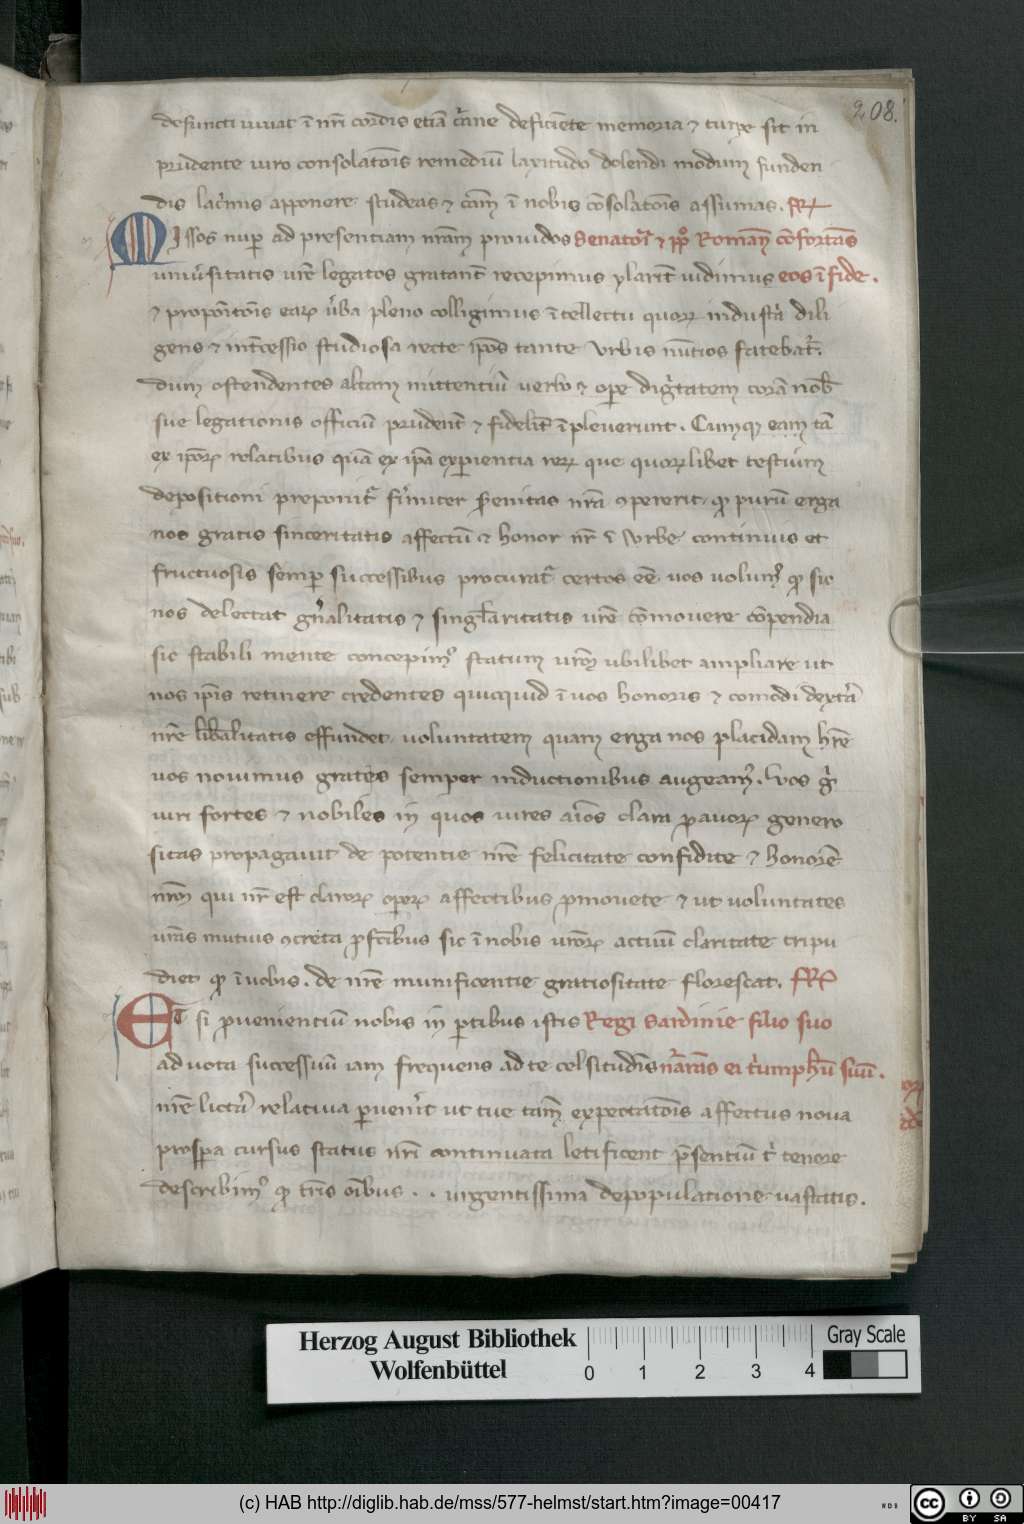 208.
defuncti vivat ī nr̄i cordis etiā c̄ane deficiēte memoria ⁊ turpe sit in
prudente viro consolatōis remediū laxitudo dolendi modum funden
dis lac̄mis apponere studeas ⁊ cām̄ ī nobis cōsolatōis assumas. FR
Missos nup̄ ad presentiam nrām̄ providos Senatori ⁊ ppo Roman̄ cōfortās
univ̄sitatis vr̄e legatos gratant̄ recepimus ylarit̄ vidimus eos ī fide.
⁊ propoīt̄ois eaꝝ v̄ba pleno colligimus ītellectu quoꝝ industr̄a dili
gens ⁊ int̄cessio studiosa recte ip̄os tante Urbis nūtios fatebat̄.
dum ostendentes altam mittentiū verbo ⁊ op̄e diḡtatem corā nob̄
sue legationis officiū prudent̄ ⁊ fidelit̄ īpleverunt. Cumqꝫ eam tā
ex ip̄oꝝ relatibus quā ex ip̄a exp̄ientia reꝝ que quoꝝlibet testium
depositioni preponit̄ firmiter s̄enitas nr̄a ꝯpererit ꝙ purū erga
nos gratis sinceritatis affectū ⁊ honor nr̄ ī Urbe continuis et
fructuosis semp̄ successibus procurat̄ certos eē vos volumꝰ ꝙ sic
nos delectat gn̄alitatis ⁊ singl̄aritatis vr̄e cōmovere cōpendia
sic stabili mente concepimꝰ statum vrm̄ ubilibet ampliare ut
nos ip̄is retinere credentes quicquid ī vos honoris ⁊ comōdi dext̄a
nr̄e lib̄alitatis effundet voluntatem quam erga nos placidam hr̄e
vos novimus grates semper inductionibus augeamꝰ. Vos ḡ
viri fortes ⁊ nobiles in quos vires aīos clara p̄avoꝝ genero
sitas propagavit de potentie nr̄e felicitate confidite ⁊ honorē
nrm̄ qui vr̄ est claroꝝ op̄eꝝ affectibus p̄movete ⁊ ut voluntates
vr̄as mutuis ꝯcreta p̄fc̄ibus sic ī nobis vr̄oꝝ actuū claritate tripu
diet ꝙ ī vobis. de nr̄e munificentie gratiositate florescat. FR
Et si p̄venientiū nobis in p̄tibus istis Regi Sardinie filio suo
ad vota successuū iam frequens ad te celsitudīs nar̄ās ei t̄umphū suū.
nr̄e lict̄a relativa p̄ven̄it ut tue tam̄ expectatōis affectus nova
prosp̄a cursus status nr̄i continuata letificent p̄sentiū t̄ tenore
describimꝰ ꝙ t̄ris oībus . . urgentissima depopulatione vastatis.
Herzog August Bibliothek
Wolfenbüttel
0 1 2 3 4
Gray Scale
(c) HAB http://diglib.hab.de/mss/577-helmst/start.htm?image=00417
WDB
cc
BY SA